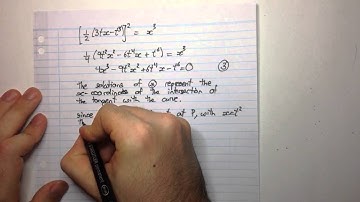 [½(3tx-t³)]² = x³
¼(9t²x²-6t⁴x+t⁶) = x³
4x³-9t²x²+6t⁴x-t⁶=0 ③
the solutions of ③ represent the
x-coordinates of the intersection of
the tangent with the curve.
since at P, with x=t²
th